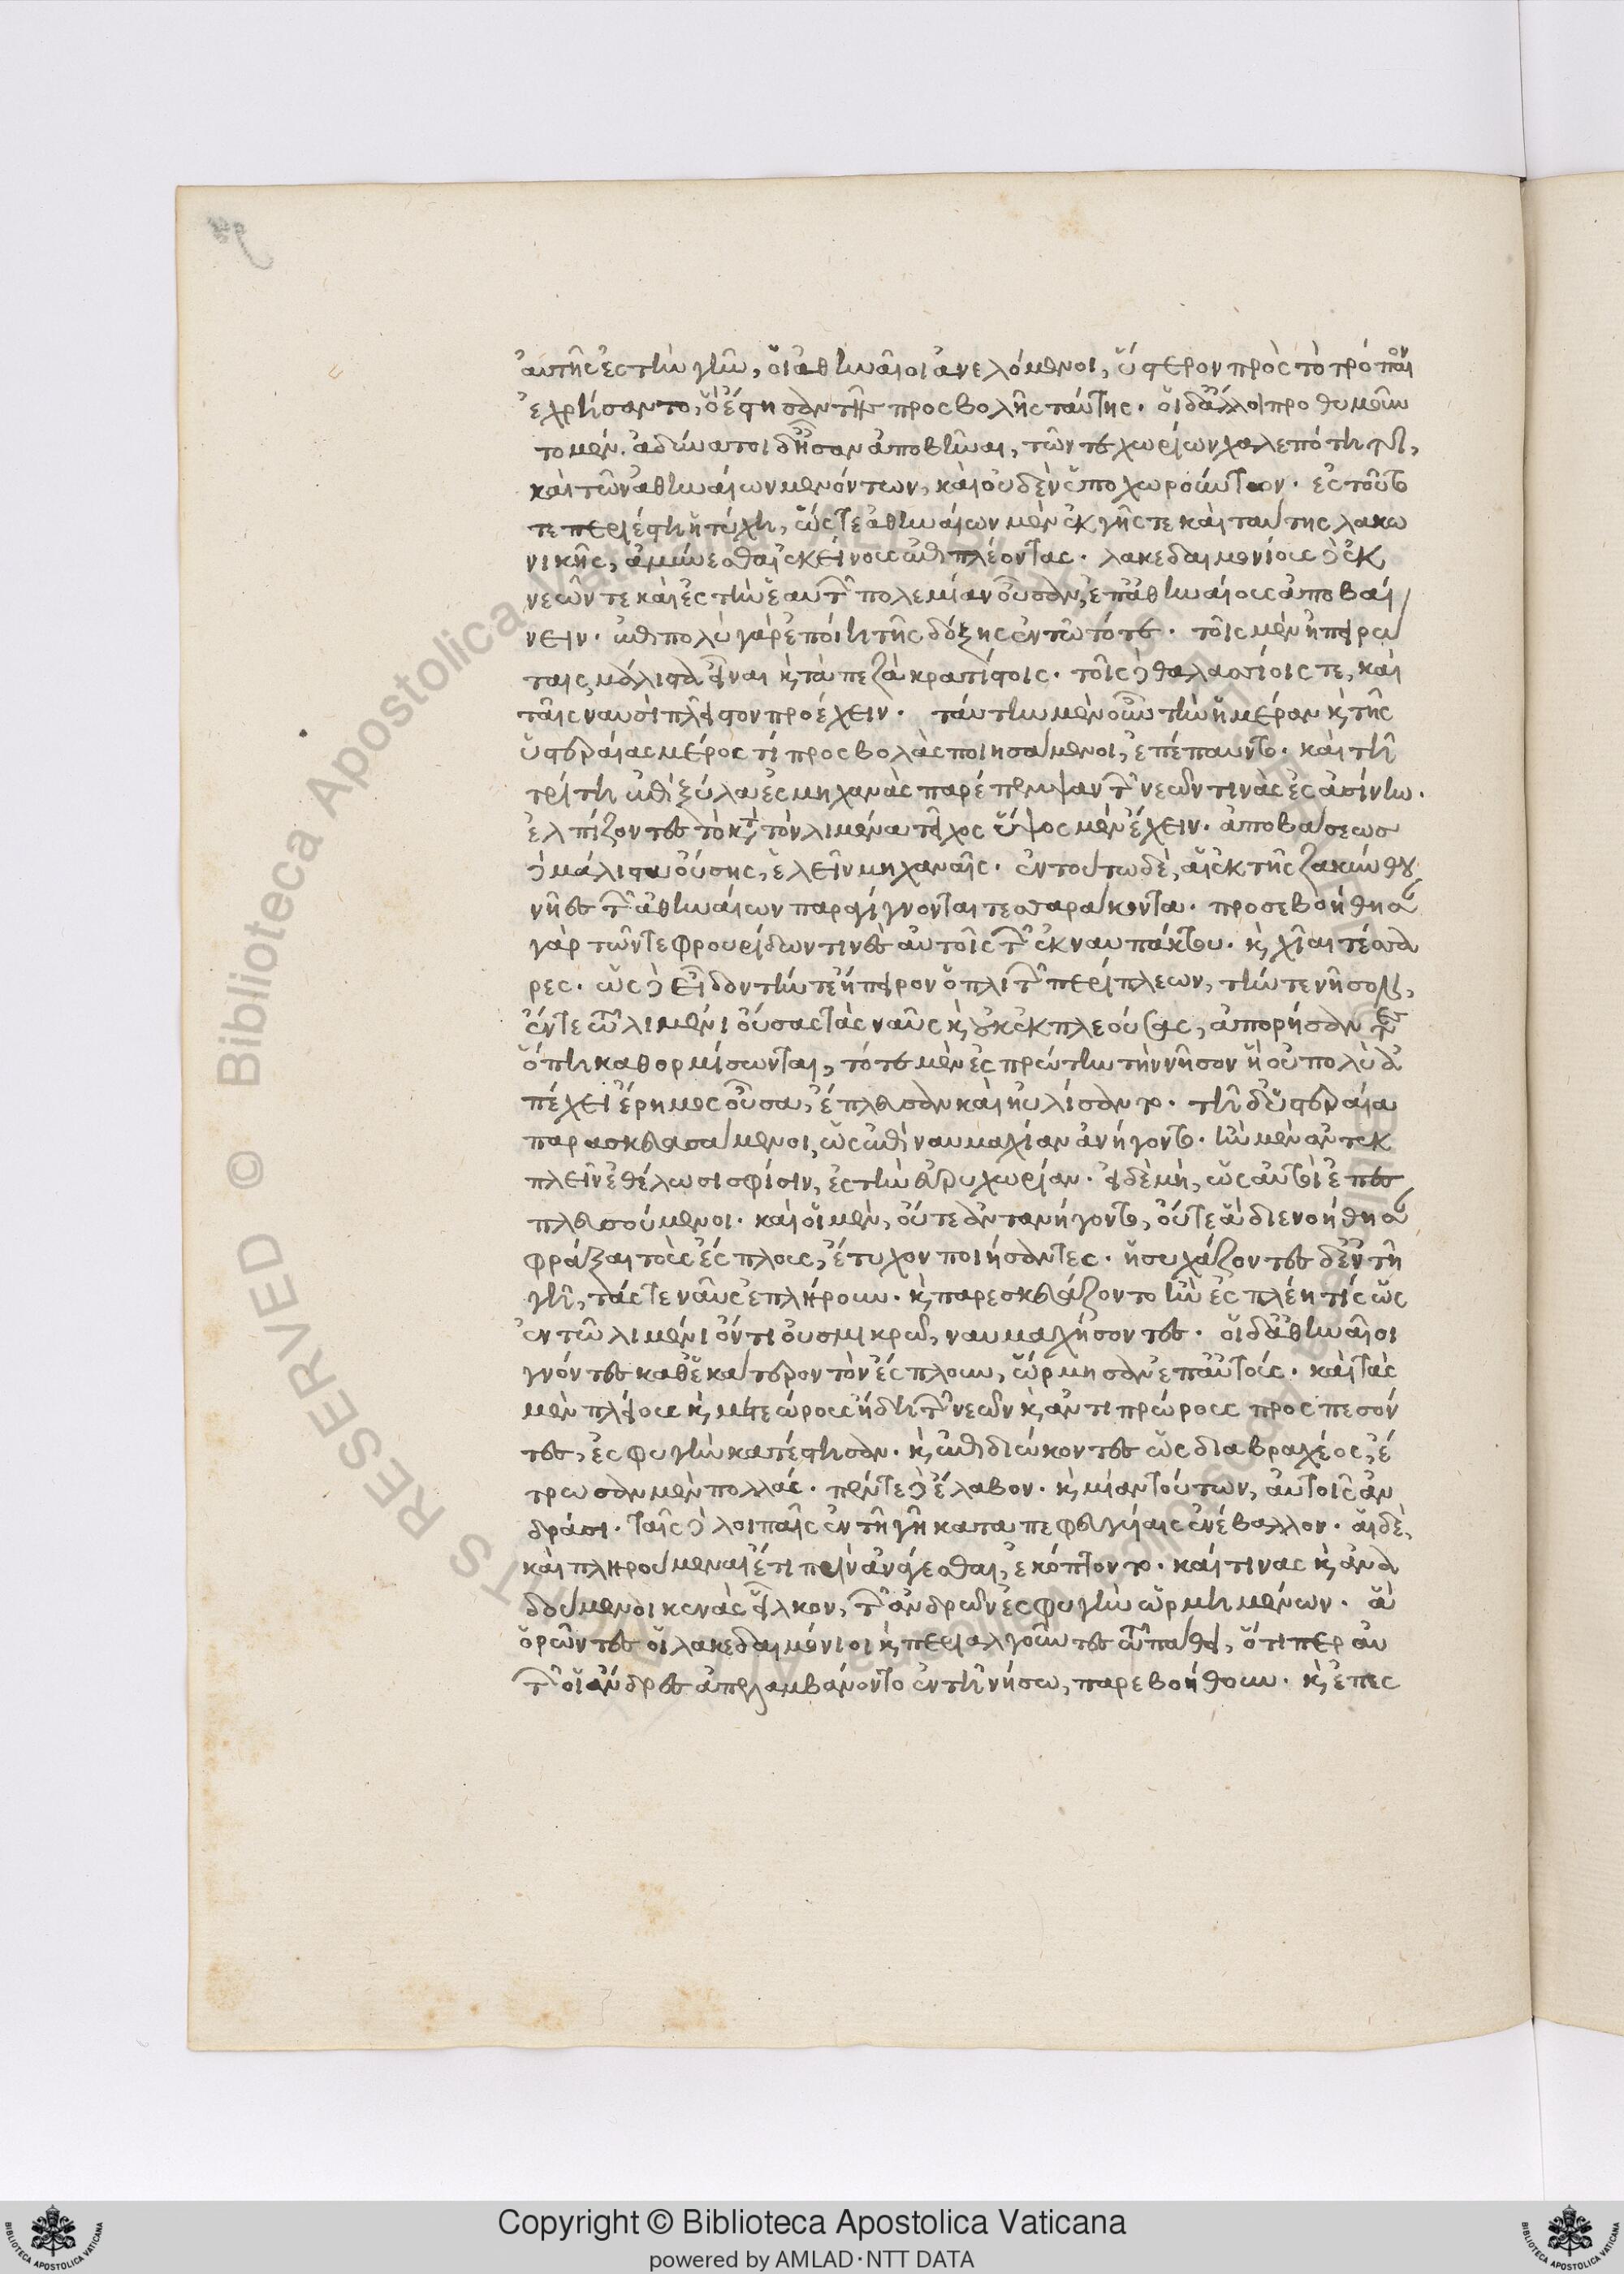 αὐτῆς ἐς τὴν γῆν, οἱ ἀθηναῖοι ἀνελόμενοι, ὕστερον πρὸς τὸ τρόπαιον
ἐχρήσαντο, ὃ ἔστησαν τῆς προσβολῆς ταύτης. οἱ δ' ἄλλοι προθυμοῦν
το μὲν. ἀδύνατοι δ' ἦσαν ἀποβῆναι, τῶν τε χωρίων χαλεπότητι,
καὶ τῶν ἀθηναίων μενόντων, καὶ οὐδὲν ὑποχωρούντων. ἐς τοῦτο
τε περιέστη ἡ τύχη, ὥστε ἀθηναίων μὲν ἐκ γῆς τε καὶ ταύτης λακω
νικῆς, ἀμύνεσθαι ἐκείνους ἐπιπλέοντας. λακεδαιμονίους δὲ ἐκ
νεῶν τε καὶ ἐς τὴν ἑαυτῶν πολεμίαν οὖσαν, ἐπ' ἀθηναίους ἀποβαί
νειν. ἐπὶ πολὺ γὰρ ἐποίει τῆς δόξης ἐν τῷ τότε. τοῖς μὲν ἠπειρώ
ταις μάλιστα εἶναι καὶ τὰ πεζὰ κρατίστοις. τοῖς δὲ θαλασσίοις τε, καὶ
ταῖς ναυσὶ πλεῖστον προέχειν. ταύτην μὲν οὖν τὴν ἡμέραν καὶ τῆς
ὑστεραίας μέρος τι προσβολὰς ποιησάμενοι, ἐπέπαυντο. καὶ τῇ
τρίτῃ ἐπὶ ξύλα ἐς μηχανὰς παρέπεμψαν τῶν νεῶν τινὰς ἐς ἀσίνην.
ἐλπίζοντες τὸ κατὰ τὸν λιμένα τεῖχος ὕψος μὲν ἔχειν. ἀποβάσεως
δὲ μάλιστα οὔσης, ἑλεῖν μηχαναῖς. ἐν τούτῳ δὲ, αἱ ἐκ τῆς ζακύνθου
νῆες τῶν ἀθηναίων παραγίγνονται τεσσαράκοντα. προσεβοήθησαν
γὰρ τῶν τε φρουρίδων τινὲς αὐτοῖς τῶν ἐκ ναυπάκτου. καὶ χῖαι τέσσα
ρες. ὡς δὲ εἶδον τήν τε ἤπειρον ὁπλιτῶν περίπλεων, τήν τε νῆσον,
ἔν τε τῷ λιμένι οὔσας τὰς ναῦς καὶ οὐκ ἐκπλεούσας, ἀπορήσαντες
ὅπῃ καθορμίσωνται, τότε μὲν ἐς πρώτην τὴν νῆσον ἣ οὐ πολὺ ἀ
πέχει ἔρημος οὖσα, ἔπλευσαν καὶ ηὐλίσαντο. τῇ δ' ὑστεραίᾳ
παρασκευασάμενοι, ὡς ἐπὶ ναυμαχίαν ἀνήγοντο. ἢν μὲν ἀντεκ
πλεῖν ἐθέλωσι σφίσιν, ἐς τὴν εὐρυχωρίαν. εἰ δὲ μὴ, ὡς αὐτοὶ ἐπεσ
πλευσούμενοι. καὶ οἱ μὲν, οὔτε ἀντανήγοντο, οὔτε ἃ διενοήθησαν
φράξαι τοὺς ἔσπλους, ἔτυχον ποιήσαντες. ἡσυχάζοντες δ' ἐν τῇ
γῇ, τάς τε ναῦς ἐπλήρουν. καὶ παρεσκευάζοντο ἢν ἐσπλέῃ τίς ὡς
ἐν τῷ λιμένι ὄντι οὐ σμικρῷ, ναυμαχήσοντες. οἱ δ' ἀθηναῖοι
γνόντες καθ' ἑκάτερον τὸν ἔσπλουν, ὥρμησαν ἐπ' αὐτούς. καὶ τὰς
μὲν πλείους καὶ μετεώρους ἤδη τῶν νεῶν καὶ ἀντιπρώρους προσπεσόν
τες, ἐς φυγὴν κατέστησαν. καὶ ἐπιδιώκοντες ὡς διὰ βραχέος, ἔ
τρωσαν μὲν πολλάς. πέντε δὲ ἔλαβον. καὶ μίαν τούτων, αὐτοῖς ἀν
δράσι. ταῖς δὲ λοιπαῖς ἐν τῇ γῇ καταπεφευγυίαις ἐνέβαλλον. αἱ δὲ,
καὶ πληρούμεναι ἔτι πρὶν ἀνάγεσθαι, ἐκόπτοντο. καί τινας καὶ ἀνα
δούμενοι κενὰς εἷλκον, τῶν ἀνδρῶν ἐς φυγὴν ὡρμημένων. ἃ
ὁρῶντες οἱ λακεδαιμόνιοι καὶ περιαλγοῦντες τῷ πάθει, ὅτιπερ αὐ
τῶν οἱ ἄνδρες ἀπελαμβάνοντο ἐν τῇ νήσῳ, παρεβοήθουν. καὶ ἐπεσ
Copyright © Biblioteca Apostolica Vaticana
powered by AMLAD·NTT DATA